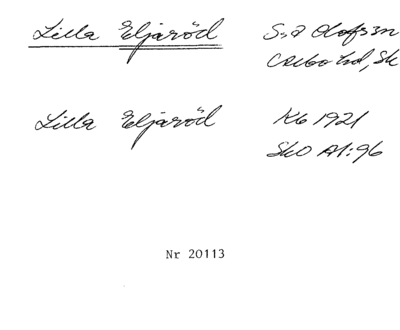 Lilla Eljaröd S:a Olofs sn
Albo hd, Sk
Lilla Eljaröd Kb 1921
SkO A1:96
Nr 20113